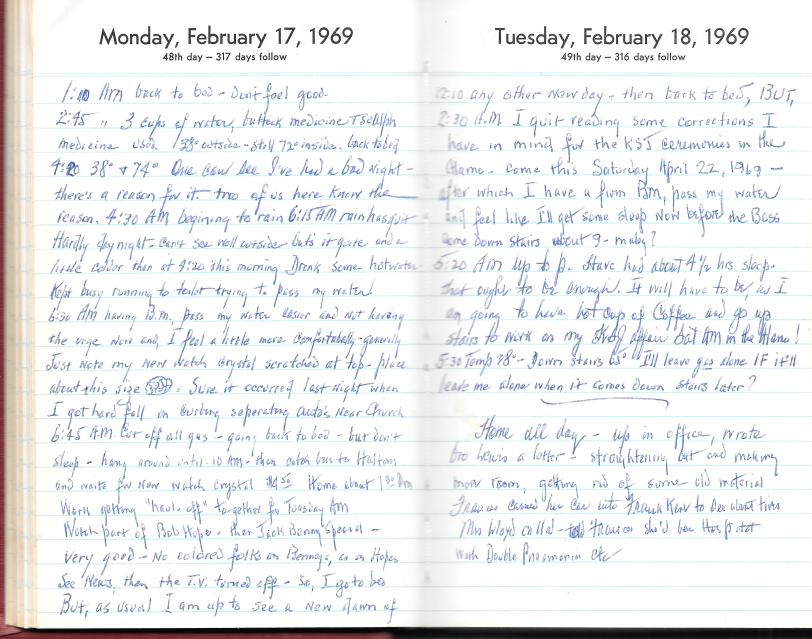 Monday, February 17, 1969
48th day – 317 days follow
1:10 AM back to bed - Don't feel good.
2:45 " 3 cups of water, buttock medicine &
medicine used. 38° outside - still 72° inside. back to bed
4:20 38° & 74° One can see I've had a bad night -
there's a reason for it. two of us here know the
reason. 4:30 AM begining to rain 6:15 AM rain has quit
Hardly daylight - can't see well outside but its quite and a
little colder than at 4:20 this morning Drank some hot water
Kept busy running to toilet trying to pass my water
6:30 AM having B.m. pass my water easier and not having
the urge now and, I feel a little more comfortabelly - generally
Just note my New watch crystal scratched at top - place
about this size Sure it occurred last night when
I got hard fall on Curbing seperating auto's Near Church
6:45 A.M. Cut off all gas - going back to bed - but don't
sleep - hang around until 10 AM - then catch bus to Haltom
and waite for New watch crystal Home about
Works getting "haul off" together for Tuesday AM
Watch part of Bob Hope - then Jack Benny Special -
very good - No colored folks on Bennys, as on Hopes
See News, then the T.V. turned off - So, I go to bed
But, as usual I am up to see a New dawn of
Tuesday, February 18, 1969
49th day – 316 days follow
any other New day - then back to bed, BUT,
2:30 A.M I quit reading some corrections I
have in mind for the KSJ ceremonies in the
Alamo - come this Saturday April 22, 1969 -
after which I have a firm Bm, pass my water
and feel like I'll get some sleep Now before the Boss
come down stairs about 9 - maby?
5:20 AM up to p. Have had about 4½ hrs sleep.
that ought to be enough. It will have to be, as I
am going to have hot cup of Coffee and go up
stairs to work on my affair at AM in the Alamo!
5:30 Temp 78° - Down stairs 65° I'll leave gas alone IF it'll
leave me alone when it comes down stairs later?
Home all day - up in office, wrote
bro Lewis a letter - straightening out and making
more room, getting rid of some old material
Frances carried her car into Frank Kent to see about tires
Mrs Lloyd called - told Frances she'd been Hospital
with Double Pneumonia etc